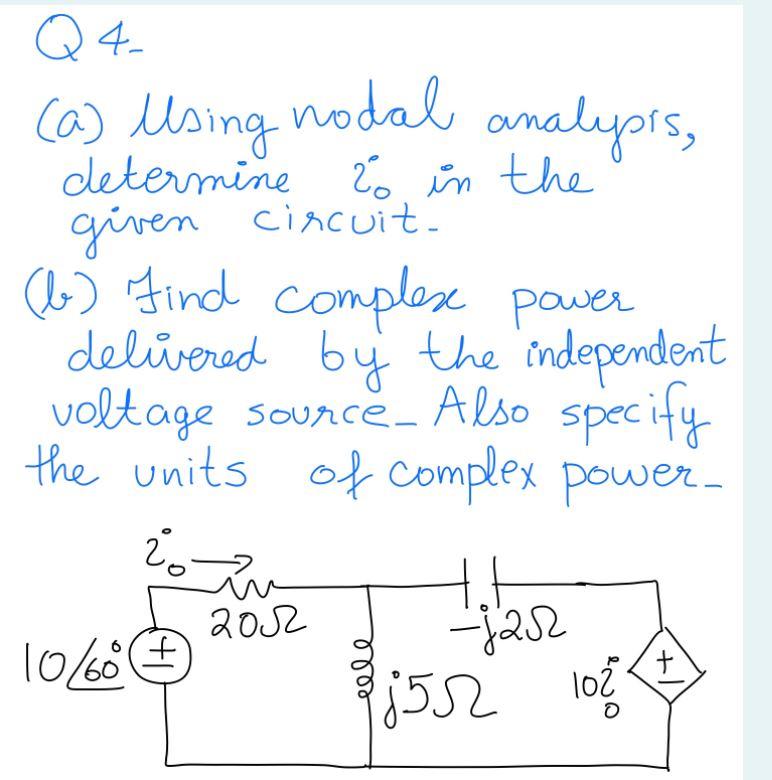 Q 4-
(a) Using nodal analysis,
determine i₀ in the
given circuit.
(b) Find complex power
delivered by the independent
voltage source. Also specify
the units of complex power.
i₀ →
20Ω
-j2Ω
10∠60°
+
-
j5Ω
10i₀
+
-